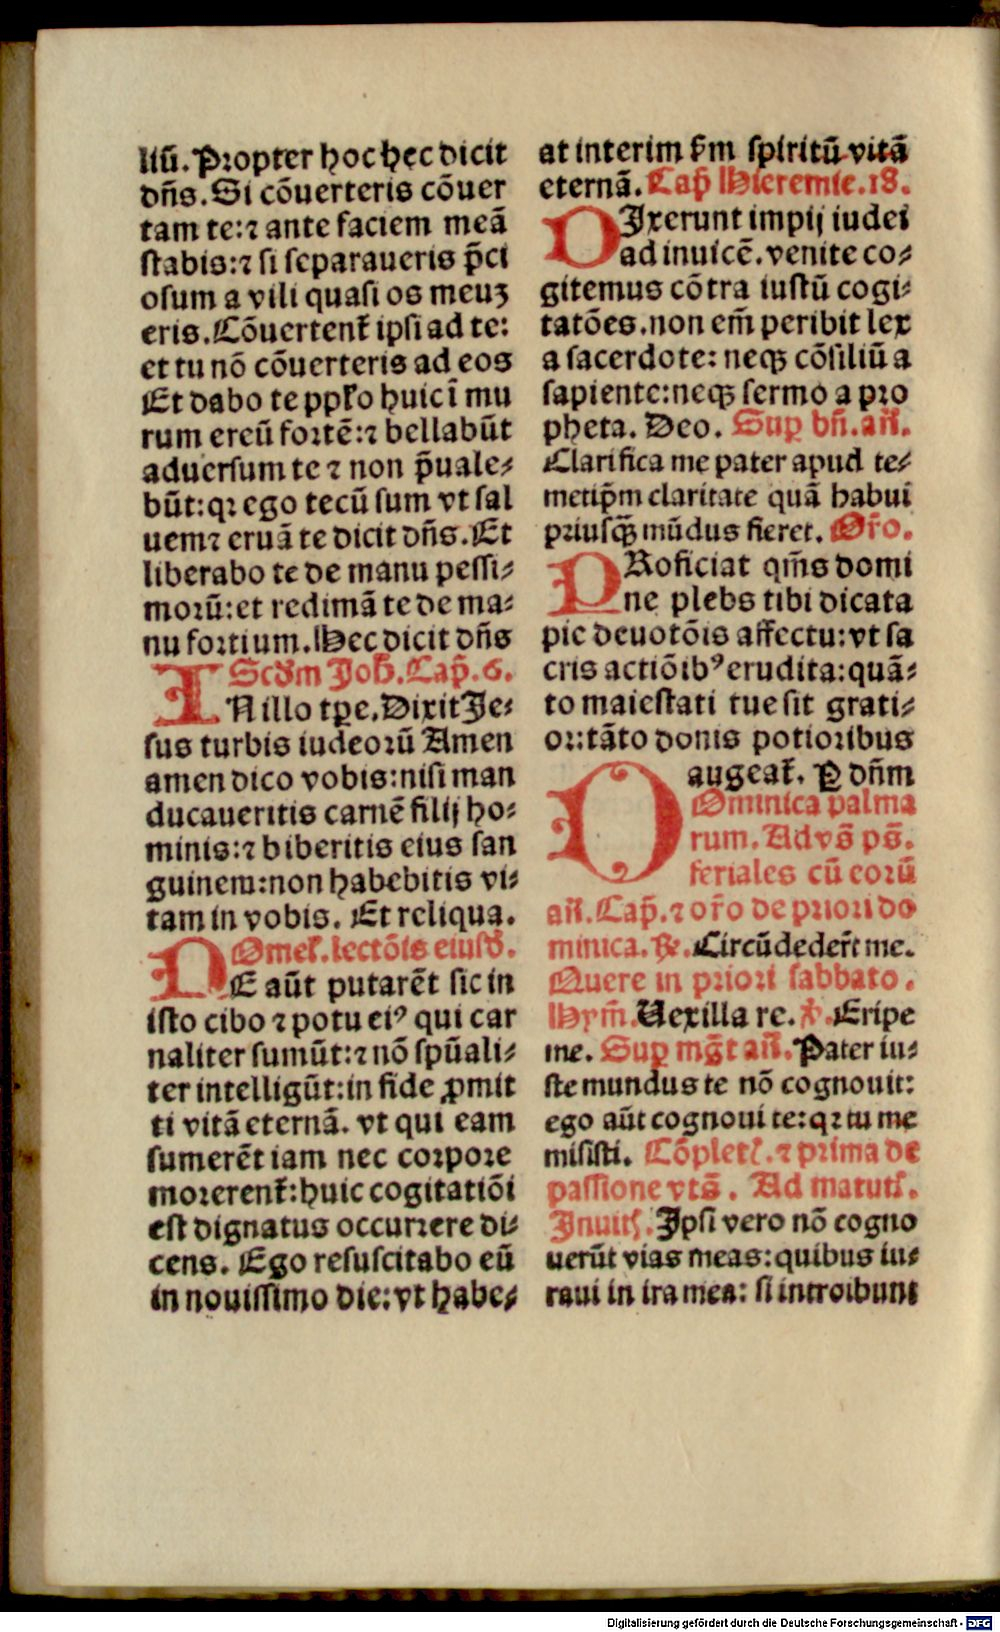 liū. Propter hoc hęc dicit
dn̄s. Si cōuerteris cōuer
tam te:ꝛ ante faciem meā
stabis:ꝛ si separaueris p̄ci
osum a vili quasi os meuꝫ
eris. Cōuertent̄ ipsi ad te:
et tu nō cōuerteris ad eos
Et dabo te ppl'o huic ī mu
rum ereū fortē:ꝛ bellabūt
aduersum te ꝛ non p̄uale⸗
būt:qꝛ ego tecū sum vt sal
uemꝛ eruā te dicit dn̄s. Et
liberabo te de manu pessi⸗
morū:et redimā te de ma⸗
nu fortium. Hec dicit dn̄s
Scd'm Joh̄. Cap̄. 6.
IN illo tꝑe. Dixit Je⸗
sus turbis iudeorū Amen
amen dico vobis:nisi man
ducaueritis carnē filij ho⸗
minis:ꝛ biberitis eius san
guinem:non habebitis vi⸗
tam in vobis. Et reliqua.
Omel'. lectōis eiusd'.
NE aūt putarēt sic in
isto cibo ꝛ potu eiꝰ qui car
naliter sumūt:ꝛ nō spūali⸗
ter intelligūt:in fide ꝓmit
ti vitā eternā. vt qui eam
sumerēt iam nec corpore
morerent̄:huic cogitatiōi
est dignatus occurrere di⸗
cens. Ego resuscitabo eū
in nouissimo die:vt habe⸗
at interim s'm spiritū vitā
eternā. Cap̄ Hieremie. 18.
DIxerunt impij iudei
ad inuicē. venite co⸗
gitemus cōtra iustū cogi⸗
tatōes. non em̄ peribit lex
a sacerdote: neqꝫ cōsiliū a
sapiente:neqꝫ sermo a pro
pheta. Deo. Suꝑ bn̄. an̄.
Clarifica me pater apud te⸗
metip̄m claritate quā habui
priusqꝫ̄ mūdus fieret. Or̄o.
PRoficiat qm̄s domi
ne plebs tibi dicata
pie deuotōis affectu:vt sa
cris actiōibꝰ erudita:quā⸗
to maiestati tue sit grati⸗
or:tāto donis potioribus
augeat̄. Ꝑ dn̄m
DOminica palma
rum. Ad vs̄ ps̄.
feriales cū eorū
an̄. Cap̄. ꝛ or̄o de priori do
minica. ℟. Circūdeder̄t me.
Quere in priori sabbato.
Hym̄. Uexilla re. ℣. Eripe
me. Suꝑ mḡt an̄. Pater iu⸗
ste mundus te nō cognouit:
ego aūt cognoui te:qꝛ tu me
misisti. Cōplet'. ꝛ prima de
passione vts̄. Ad matut'.
Inuit'. Ipsi vero nō cogno
uerūt vias meas:quibus iu⸗
raui in ira mea: si introibunt
Digitalisierung gefördert durch die Deutsche Forschungsgemeinschaft - DFG